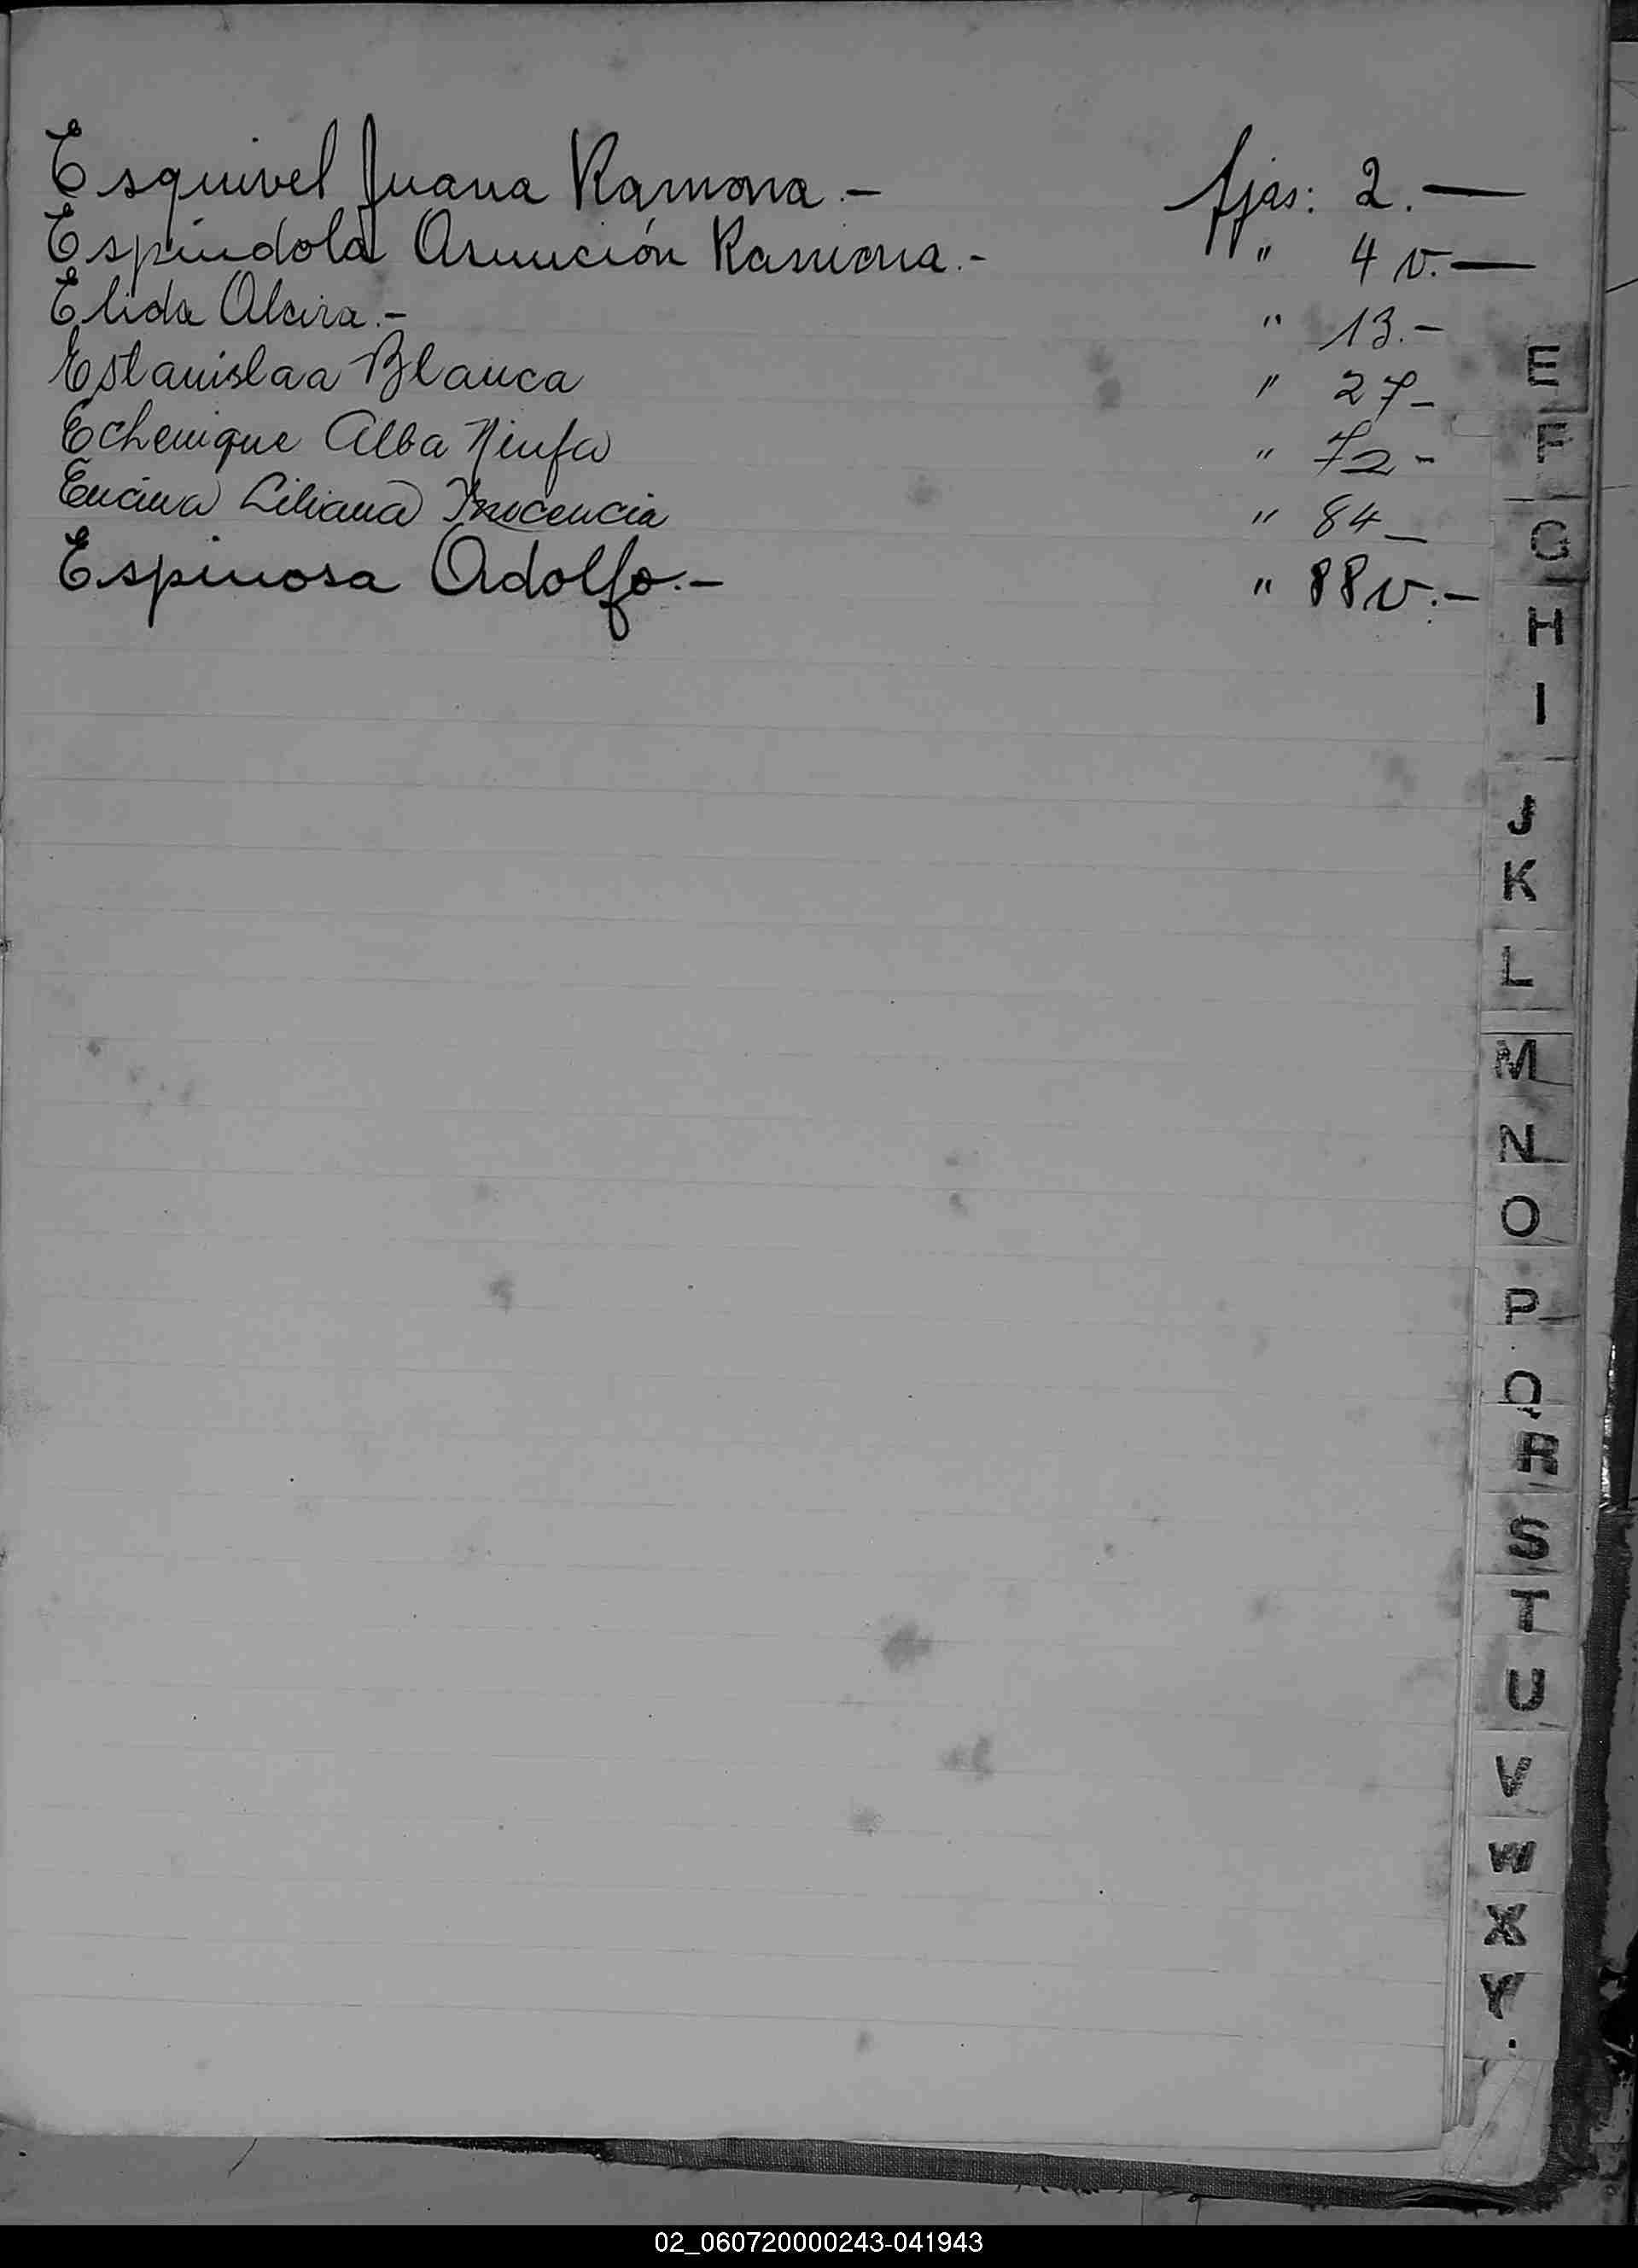 Esquivel Juana Ramona.- fjas: 2.—
Espíndola Asunción Ramona.- " 4 v.—
Elida Alcira.- " 13.-
Estanislaa Blanca " 27-
Echenique Alba Ninfa " 72-
Encina Liliana Inocencia " 84-
Espinosa Adolfo.- " 88v.-
E
F
G
H
I
J
K
L
M
N
O
P
Q
R
S
T
U
V
W
X
Y
02_060720000243-041943